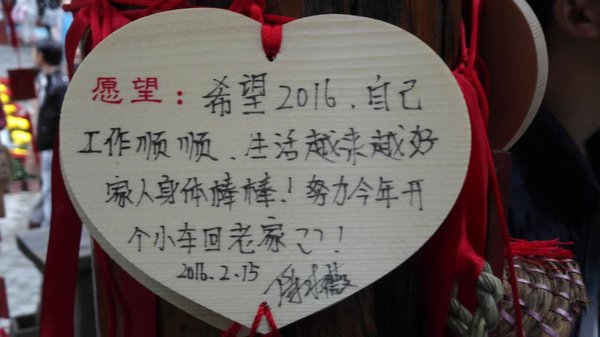 愿望：希望2016，自己
工作顺顺、生活越来越好
家人身体棒棒！努力今年开
个小车回老家！
2016.2.15